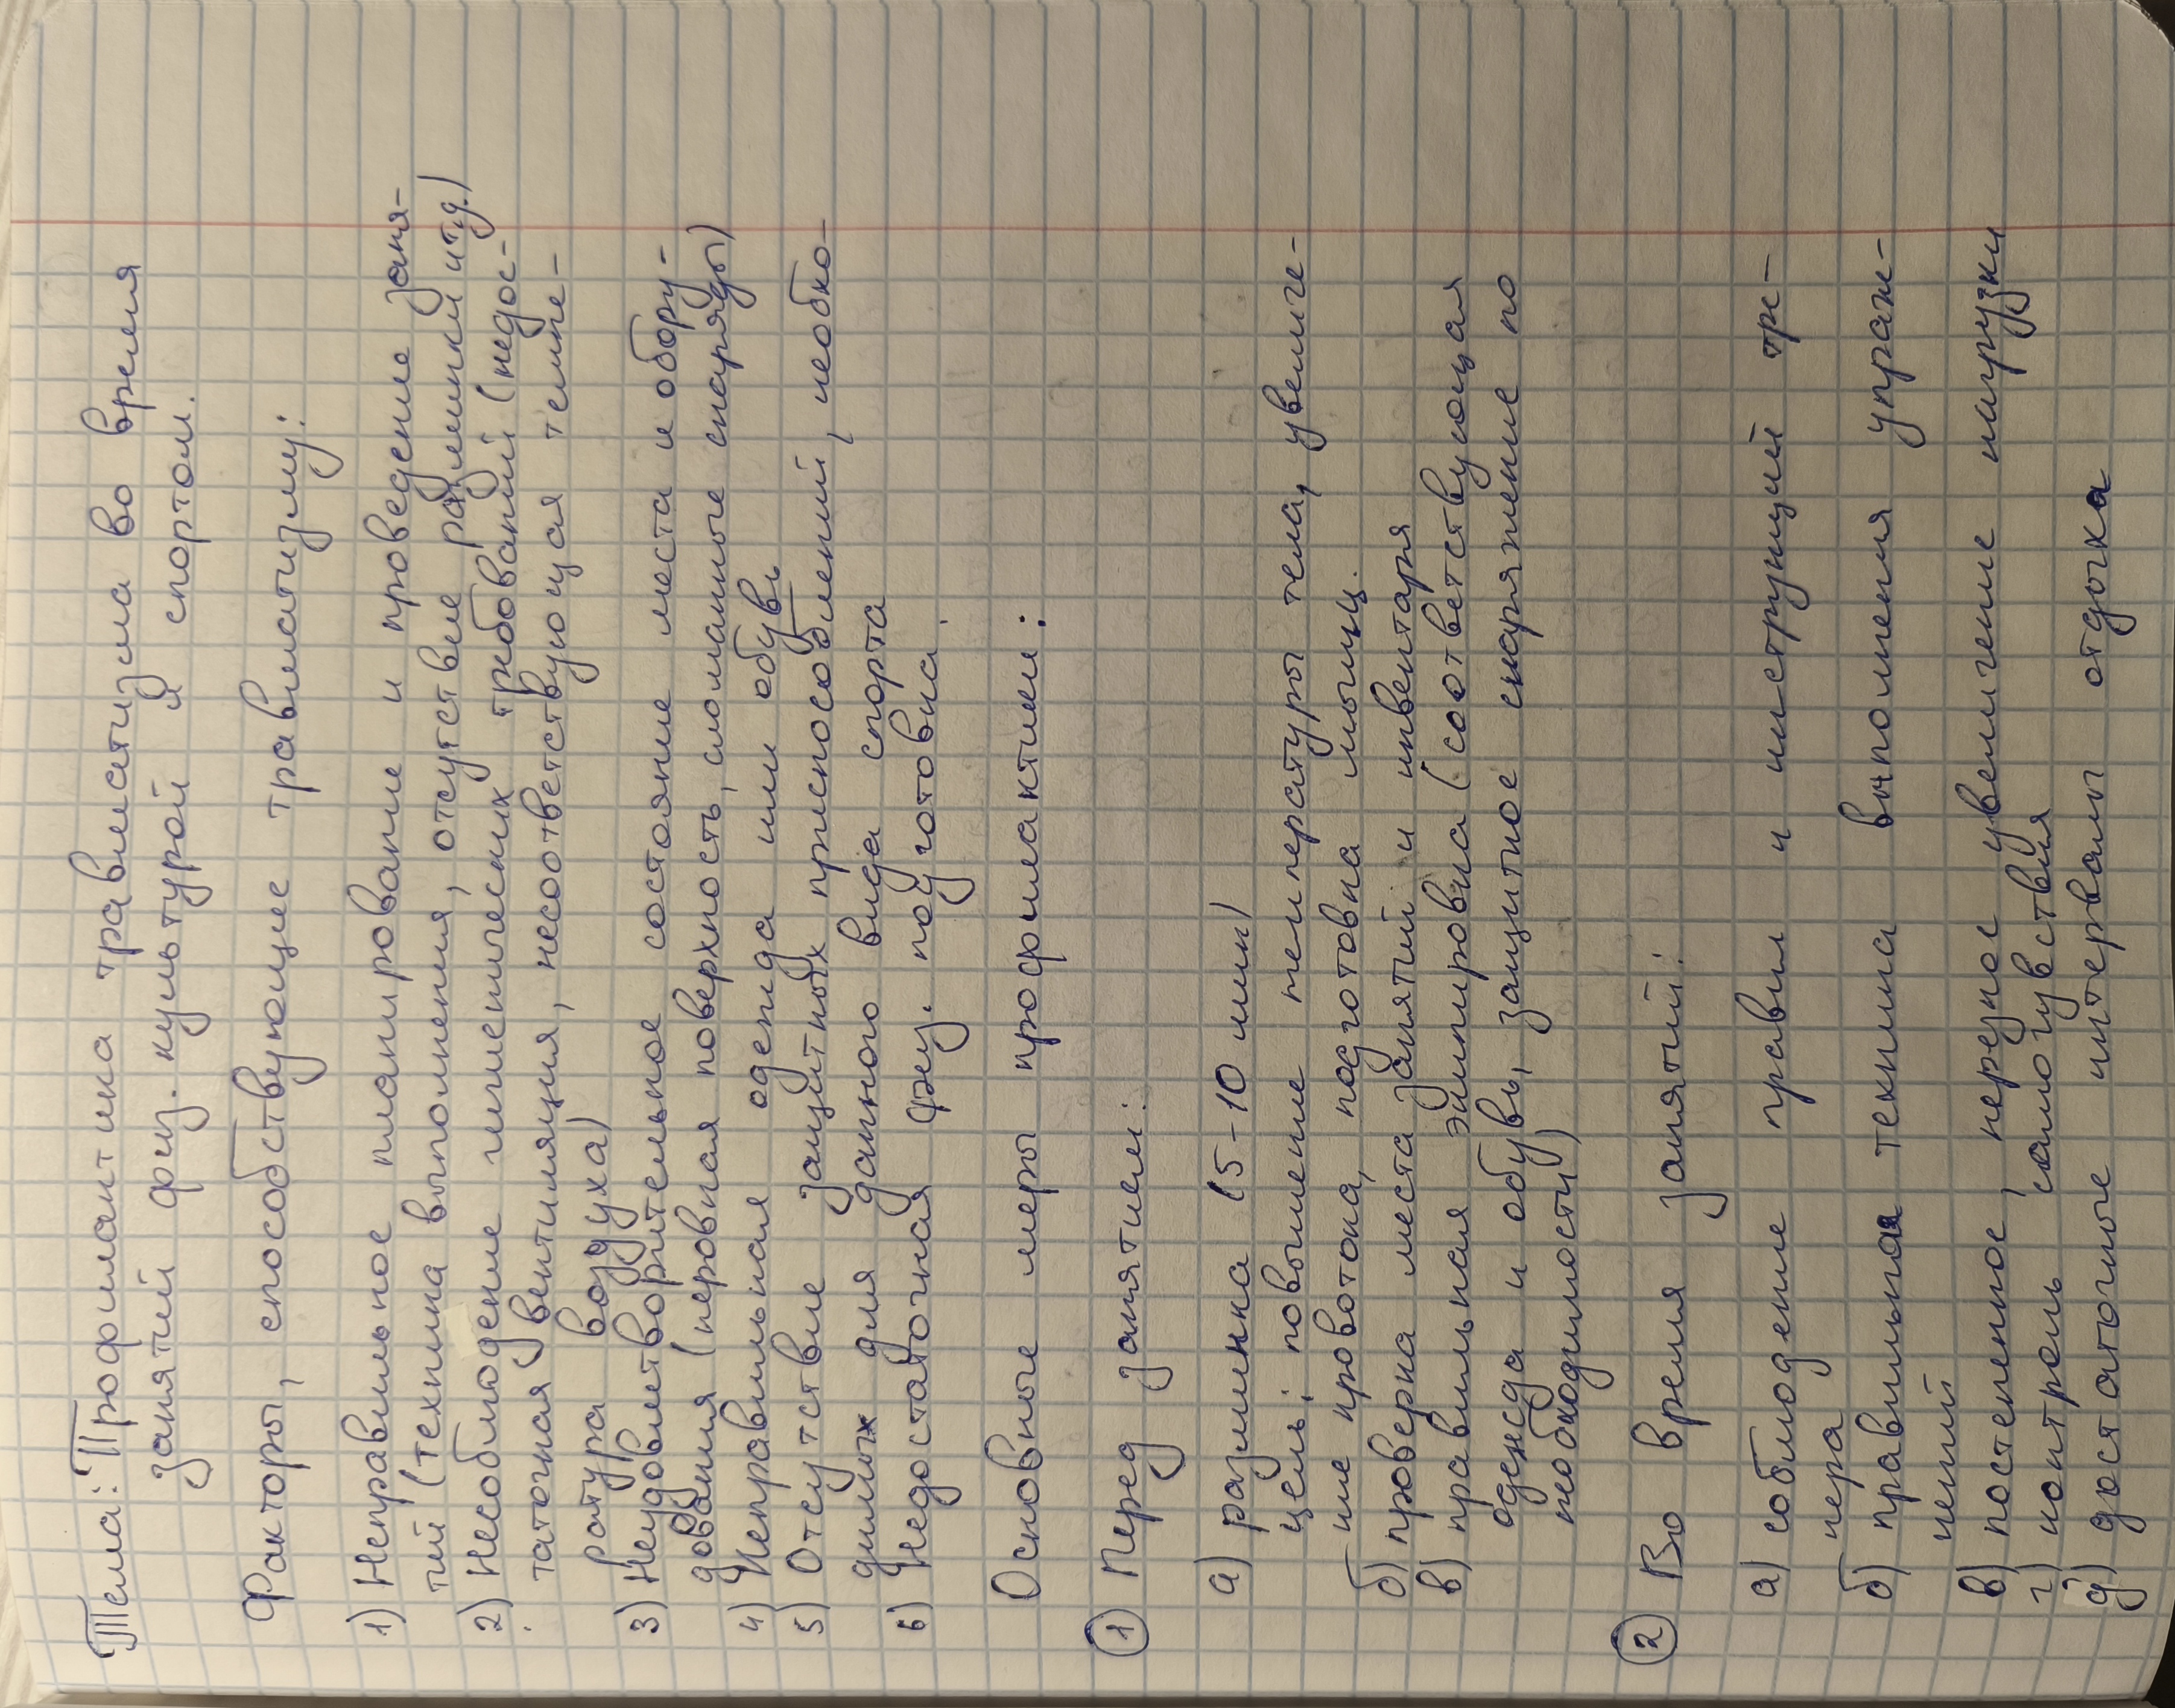 Тема: Профилактика травматизма во время
занятий физ. культурой и спортом.
Факторы, способствующие травматизму:
1) Неправильное планирование и проведение заня-
тий (техника выполнения, отсутствие разминки и т.д.)
2) Несоблюдение гигиенических требований (недос-
таточная вентиляция, несоответствующая темпе-
ратура воздуха)
3) Неудовлетворительное состояние места и обору-
дования (неровная поверхность, сломанные снаряды)
4) Неправильная одежда или обувь
5) Отсутствие защитных приспособлений, необхо-
димых для данного вида спорта
6) Недостаточная физ. подготовка.
Основные меры профилактики:
1 Перед занятием:
а) разминка (5-10 мин)
цель: повышение температуры тела, увеличе-
ние кровотока, подготовка мышц.
б) проверка места занятий и инвентаря
в) правильная экипировка (соответствующая
одежда и обувь, защитное снаряжение по
необходимости)
2 Во время занятий:
а) соблюдение правил и инструкций тре-
нера
б) правильная техника выполнения упраж-
нений
в) постепенное, нерезкое увеличение нагрузки
г) контроль самочувствия
д) достаточные интервалы отдыха